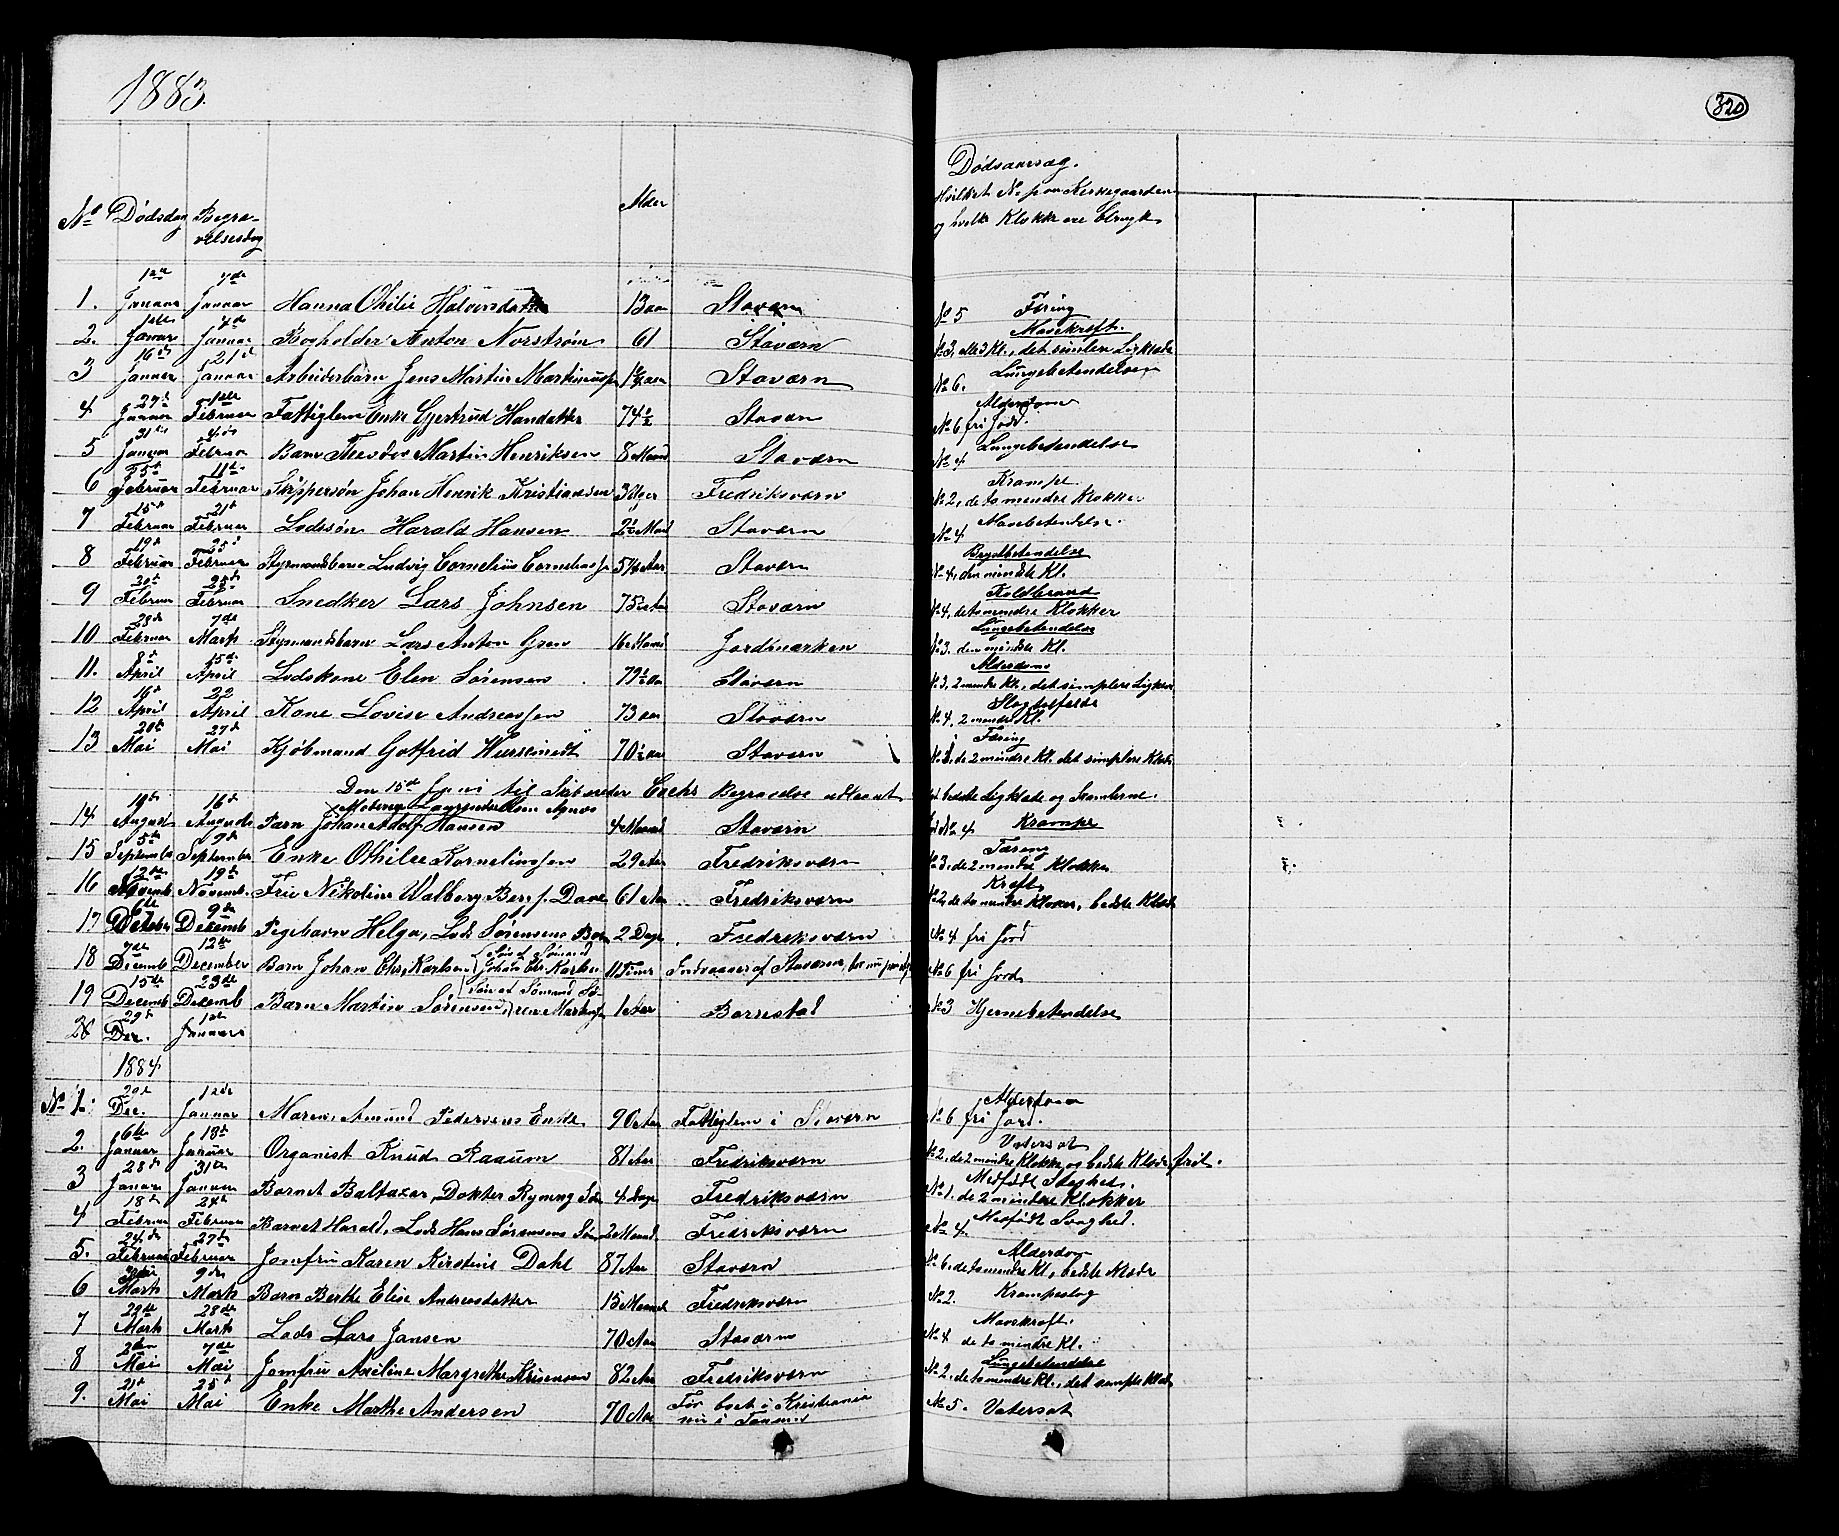 1883.
320
No Dødsdag Begra-
velsesdag
Alder
Dødsaarsag.
Hvilket No paa Kirkegaarden
og hvilke Klokke ere brugt
1. 1ste Januar 7de Januar Hanna Othilie 13 aar Staværn No 5 Tæring
2. Januar Januar Bogholder Anton Norstrøm 61 Staværn Mavekræft. No 3, det simplere Ligklæde
3 16de Januar 21de Januar Arbeiderbarn Jens Martin Staværn No 6. Lungebetendelse
4 27de Januar 1ste Februar Fattiglem Enke Gjertrud 74½ Staværn Alderdom No 6 fri Jord.
5 31te Januar 4de Februar Barn Theodor Martin Henriksen 8 Maand Staværn No 4 Lungebetendelse
6 5te Februar 11te Februar Skippersøn Johan Henrik Kristiansen 3 Uger Fredriksværn Krampe No 2, de to mindre Klokker
7 15de Februar 21de Februar Lodssøn Harald Hansen 2½ Maand Staværn No 4 Mavebetendelse.
8 19de Februar 25de Februar Styrmandsbarn Ludvig Cornelius 5¼ Aar Staværn Brystbetendelse No 4, den mindste Kl.
9 20de Februar 25de Februar Snedker Lars Johnsen 75 Aar Staværn Koldbrand No 4, de to mindre Klokker
10 28de Februar 7de Marts Styrmandsbarn Lars Anton 16 Maand Jordmarken Lungebetendelse No 3. den mindste Kl.
11. 8de April 15de April Lodskone Elen Sørensen 79½ aar Staværn Alderdom No 3, 2 mindre Kl., det simplere Ligklæde
12 16de April 22 April Kone Lovise Andreassen 73 aar Staværn Slagtilfælde No 4, 2 mindre Kl.
13 20de Mai 27de Mai Kjøbmand Gotfrid 70½ aar Staværn Tæring No 3, de 2 mindre Kl. det simplere Klæde
Den 15de Juni til Skibsreder Begravelse bedste Ligklæde og Skamlerne.
14 August 16de August Barn Johan Adolf Hansen 4 Maand Staværn No 4 Krampe
15 5te September 9de September Enke Othilie Korneliussen 29 Aar Fredriksværn Tæring No 3, de 2 mindre Klokker
16 12te Novemb. 19de Novemb. Fru Nikoline Walborg 61 Aar Fredriksværn Kræft No 2, de to mindre Klokker, bedste Klæde
17 6te 9de Decemb Pigebarn Helga, Lods Sørensens Barn 2 Dage Fredriksværn No 4 fri Jord
18 7de Decemb 12te December Barn Johan Chr. Karlsen (Søn af Sømand Johan Chr. Karlsen) 11 Timer No 6 fri Jord
19 15de Decemb 23de Decemb Barn Martin Sørensen (Søn af Sømand 1 Aar No 3 Hjernebetendelse
20 29de Dec. 1ste Januar
1884
No 1. 29de Dec. 1ste Januar Maren, Amund Pedersens Enke 90 Aar Fattiglem i Staværn Alderdom No 6 fri Jord.
2. 6te Januar 13de Januar Organist Knud 81 Aar Fredriksværn Vatersot No 2, de 2 mindre Klokker og bedste Klæde frit.
3 28de Januar 31te Januar Barnet Baltazar, Dokter Ryning Søn 4 Dage Fredriksværn Medfødt No 1. de 2 mindre Klokker
4 18de Februar 24de Februar Barnet Harald, Lods Hans Sørensens Søn 2 Maand. Fredriksværn No 4 Medfødt Svaghed.
5. 24de Februar 27de Februar Jomfru Karen Kirstine Dahl 87 Aar Staværn Alderdom No 6, de to mindre Kl, bedste Klæde
6 Marts 9de Marts Barn Berthe Elise Andreasdatter 15 Maaned Fredriksværn No 2. Krampeslag
7 22de Marts 28de Marts Lods Lars Jansen 70 Aar Staværn Mavekræft. No 4 de to mindre Kl.
8 2den Mai 7de Mai Jomfru Margrethe 82 Aar Fredriksværn Lungebetendelse No 2, de to mindre Kl., det simple Klæde
9. 21de Mai 25de Mai Enke Marthe Andersen 70 Aar Før boet i Kristiania nu i No 5. Vatersot